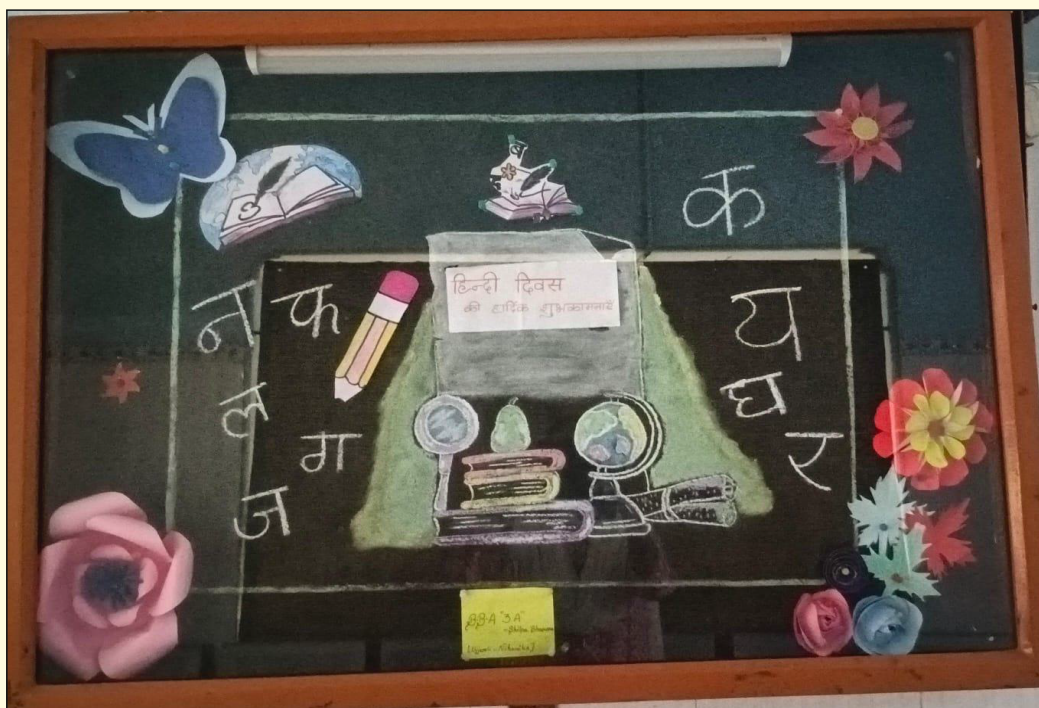 क
हिन्दी दिवस
की हार्दिक शुभकामनायें
न फ
य
ल
घ
ग
र
ज
B.B.A "3.A"